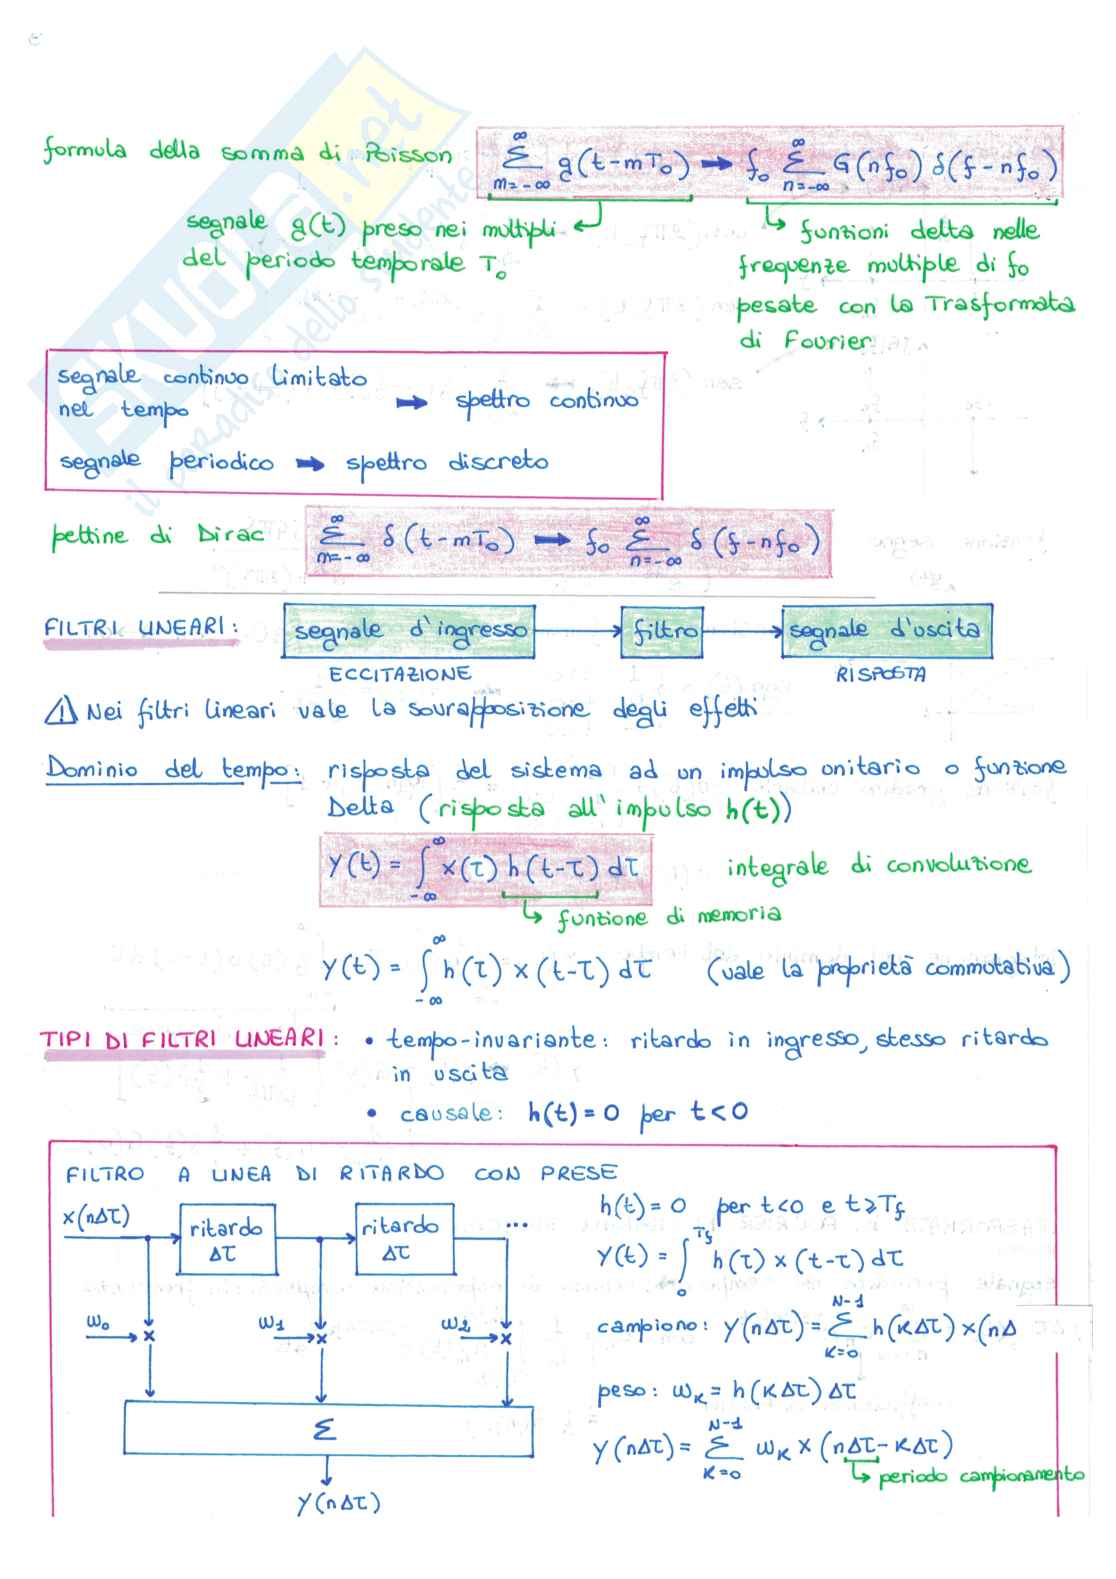 formula della somma di Poisson
∞ ∑ m=-∞ g(t-mT₀) → f₀ ∞ ∑ n=-∞ G(nf₀) δ(f-nf₀)
segnale g(t) preso nei multipli
del periodo temporale T₀
funzioni delta nelle
frequenze multiple di f₀
pesate con la Trasformata
di Fourier
segnale continuo limitato
nel tempo → spettro continuo
segnale periodico → spettro discreto
pettine di Dirac ∞ ∑ m=-∞ δ(t-mT₀) → f₀ ∞ ∑ n=-∞ δ(f-nf₀)
FILTRI LINEARI: segnale d'ingresso → filtro → segnale d'uscita
ECCITAZIONE RISPOSTA
⚠ Nei filtri lineari vale la sovrapposizione degli effetti
Dominio del tempo: risposta del sistema ad un impulso unitario o funzione
Delta (risposta all'impulso h(t))
Y(t) = ∫ -∞ ∞ x(τ) h(t-τ) dτ integrale di convoluzione
funzione di memoria
Y(t) = ∫ -∞ ∞ h(τ) x(t-τ) dτ (vale la proprietà commutativa)
TIPI DI FILTRI LINEARI: • tempo-invariante: ritardo in ingresso, stesso ritardo
in uscita
• causale: h(t)=0 per t<0
FILTRO A LINEA DI RITARDO CON PRESE
x(nΔτ)
ritardo
Δτ
ritardo
Δτ
...
ω₀ x ω₁ x ω₂ x
Σ
Y(nΔτ)
h(t)=0 per t<0 e t≥Tf
Y(t) = ∫ 0 Tf h(τ) x(t-τ) dτ
campiono: Y(nΔτ) = N-1 ∑ K=0 h(KΔτ) x(nΔ
peso: ωK = h(KΔτ) Δτ
Y(nΔτ) = N-1 ∑ K=0 ωK x(nΔτ-KΔτ)
periodo campionamento
SKUOLA.net
il paradiso dello studente